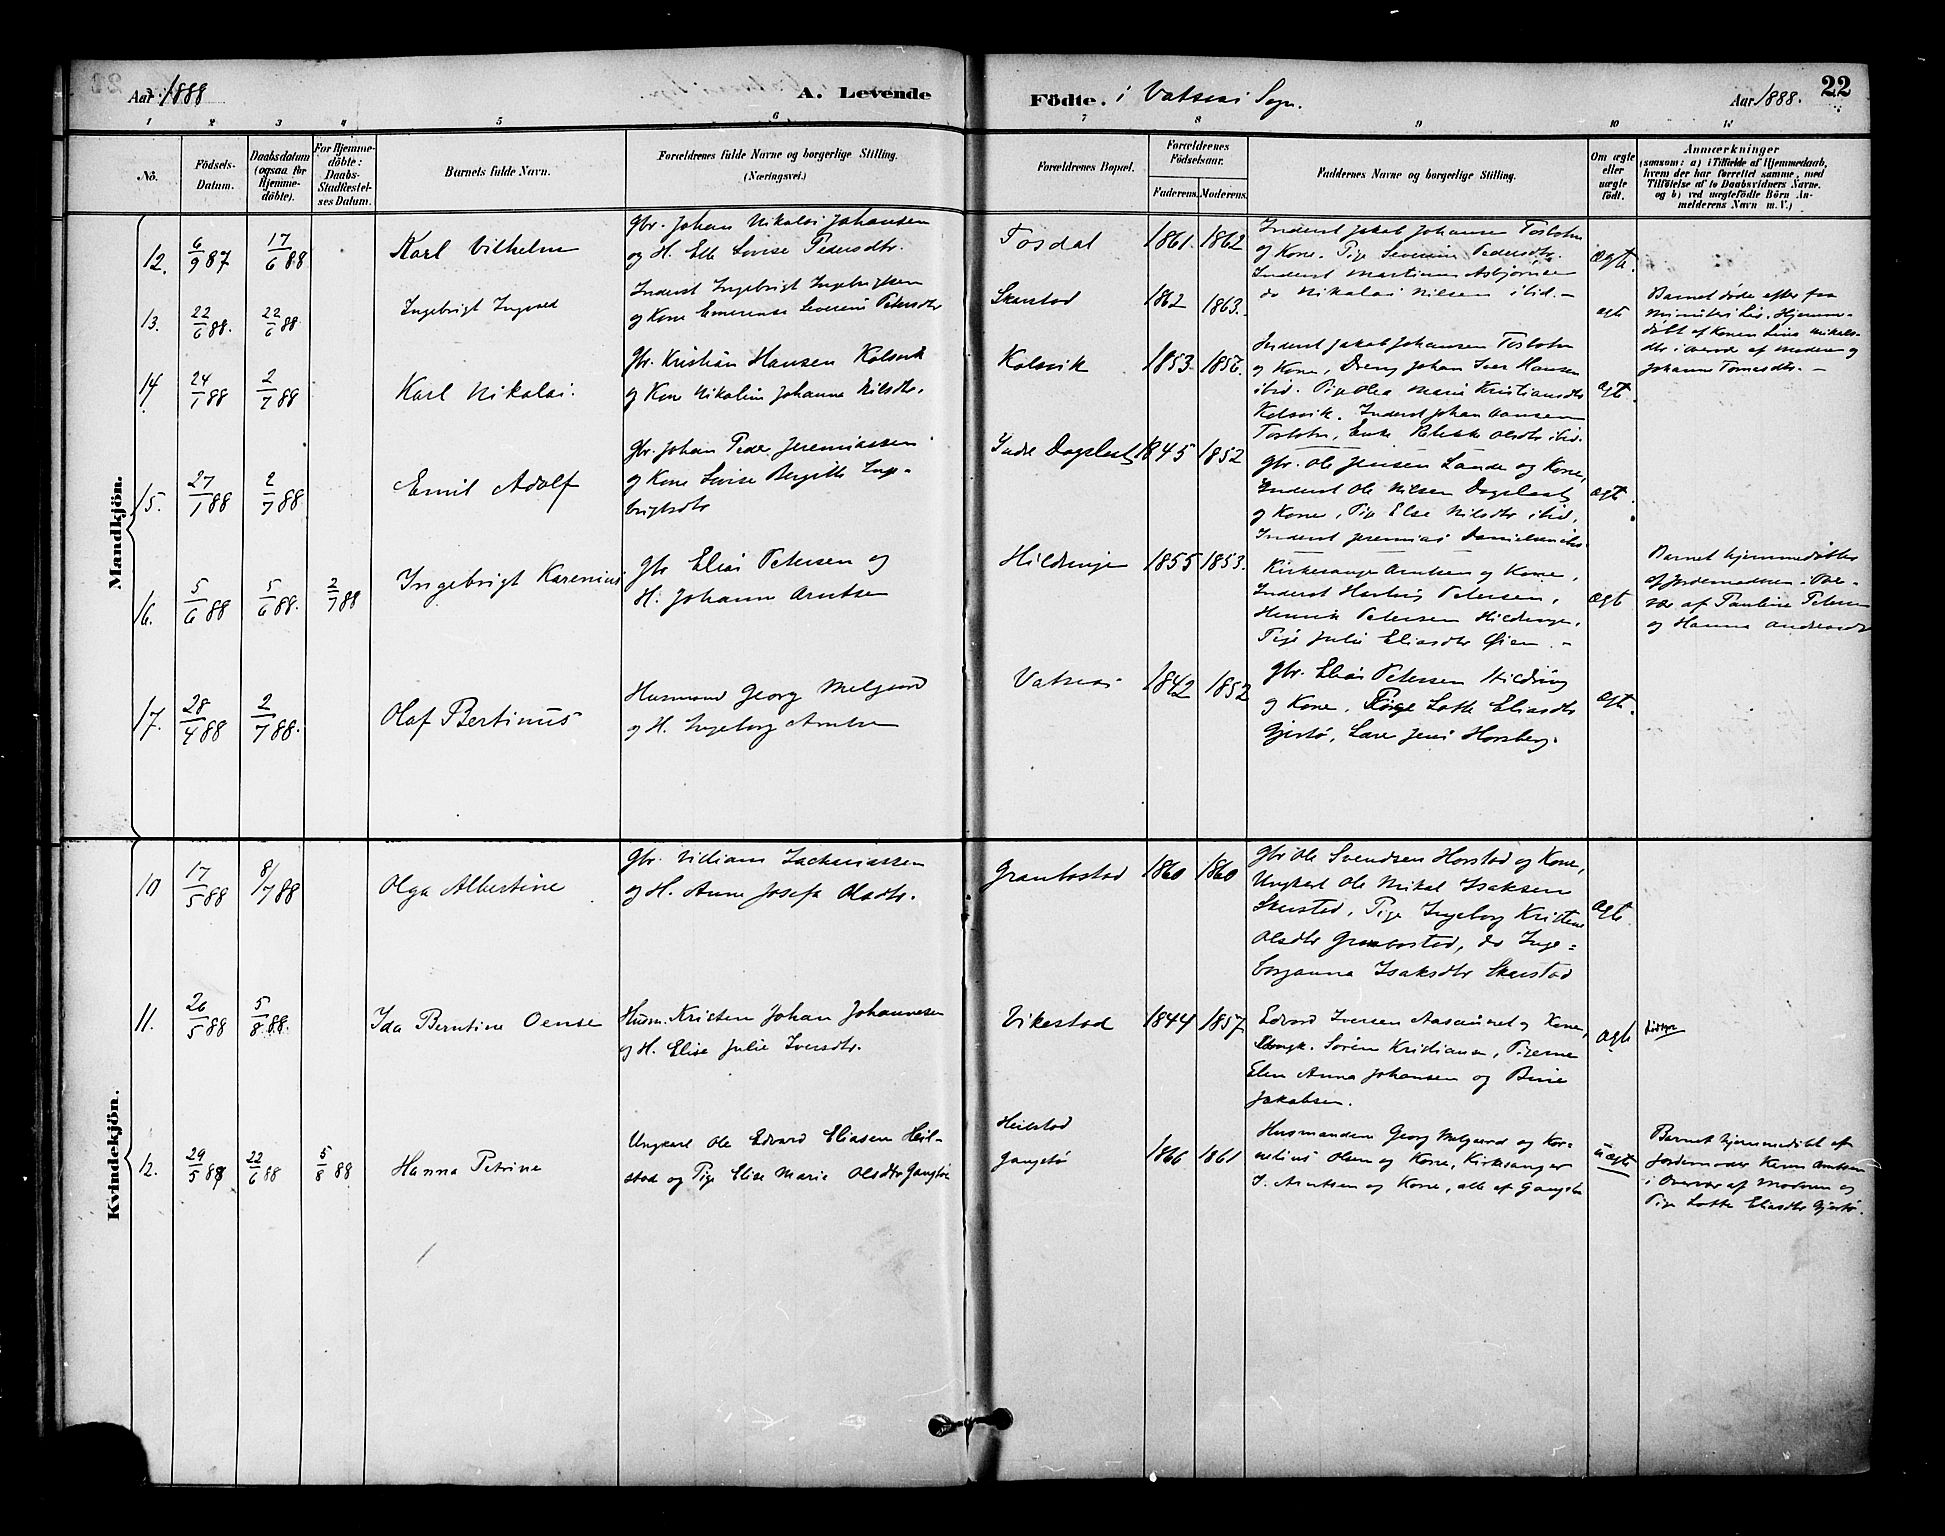 22
Aar 1888
A. Levende
Födte. i Vatsaas Sogn.
Aar 1888.
1 2 3 4 5 6 7 8 9 10 11
Nö.
Födsels-Datum.
Daabsdatum (ogsaa for Hjemme-döbte).
For Hjemme-döbte: Daabs-Stadfæstel-ses Datum.
Barnets fulde Navn.
Forældrenes fulde Navne og borgerlige Stilling.
(Næringsvei.)
Forældrenes Bopæl.
Forældrenes Födselsaar.
Faderens. Moderens.
Faddernes Navne og borgerlige Stilling.
Om ægte eller uægte födt.
Anmærkninger
(saasom: a) i Tilfælde af Hjemmedaab, hvem der har forrettet samme, med Tilföielse af to Daabsvidners Navne, og b) ved uægtefödte Börn An-melderens Navn m. V.)
Mandkjön.
12. 6/9 87 17/6 88 Karl Vilhelm
Gbr. Johan Nikolai Johansen
og H. Elb Lovise Pedersdtr.
Tosdal 1861. 1862
Inderst Jakob Johansen
og Kone. Pige Severine Pedersdtr.
Inderst Martinus Asbjørnsen
do Nikolai Nilsen ibid.-
ægte.
13. 22/6 88. 22/6 88 Ingebrigt Ingvard
Inderst Ingebrigt Ingebrigtsen
og Kone Emerense Severine Petersdtr
Skarstad 1862 1863.
ægte
Barnet døde efter faa
Minuters Liv. Hjemme-
døbt af Konen Lina Mikels-
dtr i Overvær af Moderen og
Johanna Tomasdtr. -
14. 24/1 88 2/7 88 Karl Nikolai.
Gbr. Kristian Hansen Kolsvik
og Kone Nikoline Johanna Nilsdtr.
Kolsvik 1853. 1856.
Inderst Jakob Johansen
og Kone, Dreng Johan Iver Hansen
ibid. Pige Olea Marie Kristiansdtr
Kolsvik. Inderst Johan Hansen
Enke Olsdtr ibid.
ægte.
15. 27/1 88 2/7 88 Emil Adolf
Gbr. Johan Peder Jeremiassen
og Kone Lovise Bergitte Inge-
brigtsdtr
Indre Dagslaat 1845 1852
Gbr. Ole Jensen Lande og Kone,
Inderst Ole Nilsen Dagslaat
og Kone, Pige Else Nilsdtr ibid,
Inderst Jeremias Danielsen ibid.
ægte.
16. 5/6 88 5/6 88. 2/7 88 Ingebrigt Karenius
Gbr Elias Petersen og
H. Johanna Arntsen
Hildringen 1855 1853.
Kirkesanger Arntsen og Kone,
Inderst Hartvig Petersen,
Henrik Petersen Hildringen,
Pige Julie Eliasdtr Øien. -
Ægte
Barnet hjemmedøbtes
af Jordemoderen. Over-
vær af Pauline Petersen
og Hanna Andreasdtr
17. 28/4 88 2/7 88. Olaf Bertinus
Husmand Georg Melgaard
og H. Ingeborg Arntsen
Vatsaas 1842 1852
Gbr. Elias Petersen Hildring
og Kone, Pige Lotte Eliasdtr
Gjestø, Lars Jensi Horsberg.
ægte.
Kvindekjön.
10 17/5 88 8/7 88 Olga Albertine
Gbr. Villiam Zachariassen
og H. Anne Josefa Olsdtr.
Granbostad 1860 1860
Gbr Ole Svendsen Horstad og Kone,
Ungkarl Ole Mikal Isaksen
Skarstad, Pige Ingeborg Kristine
Olsdtr Granbostad, do Inge=
borganna Isaksdtr Skarstad
ægte.
11. 26/5 88 5/8 88. Ida Berntine Oense
Husm. Kristen Johan Johannesen
og H. Elise Julie Iversdtr.
Vikestad 1844 1857.
Edvard Iversen Aasaunet og Kone,
Ungk. Søren Kristiansen, Pigerne
Elen Anna Johansen og Bine
Jakobsen.
ægte
12. 29/5 88 22/6 88 5/8 88 Hanna Petrine
Ungkarl Ole Edvard Eliasen Heil-
stad og Pige Elise Marie Olsdtr Gangstø
Heilstad
Gangstø 1866 1861
Husmanden Georg Melgaard og Kor-
nelius Olsen og Kone, Kirkesanger
I. Arntsen og Kone, alle af Gangstø
uægte
Barnet hjemmedøbt af
Jordemoder Karen Arntsen
i Overvær af Moderen og
Pige Lotte Eliasdtr Gjestø.